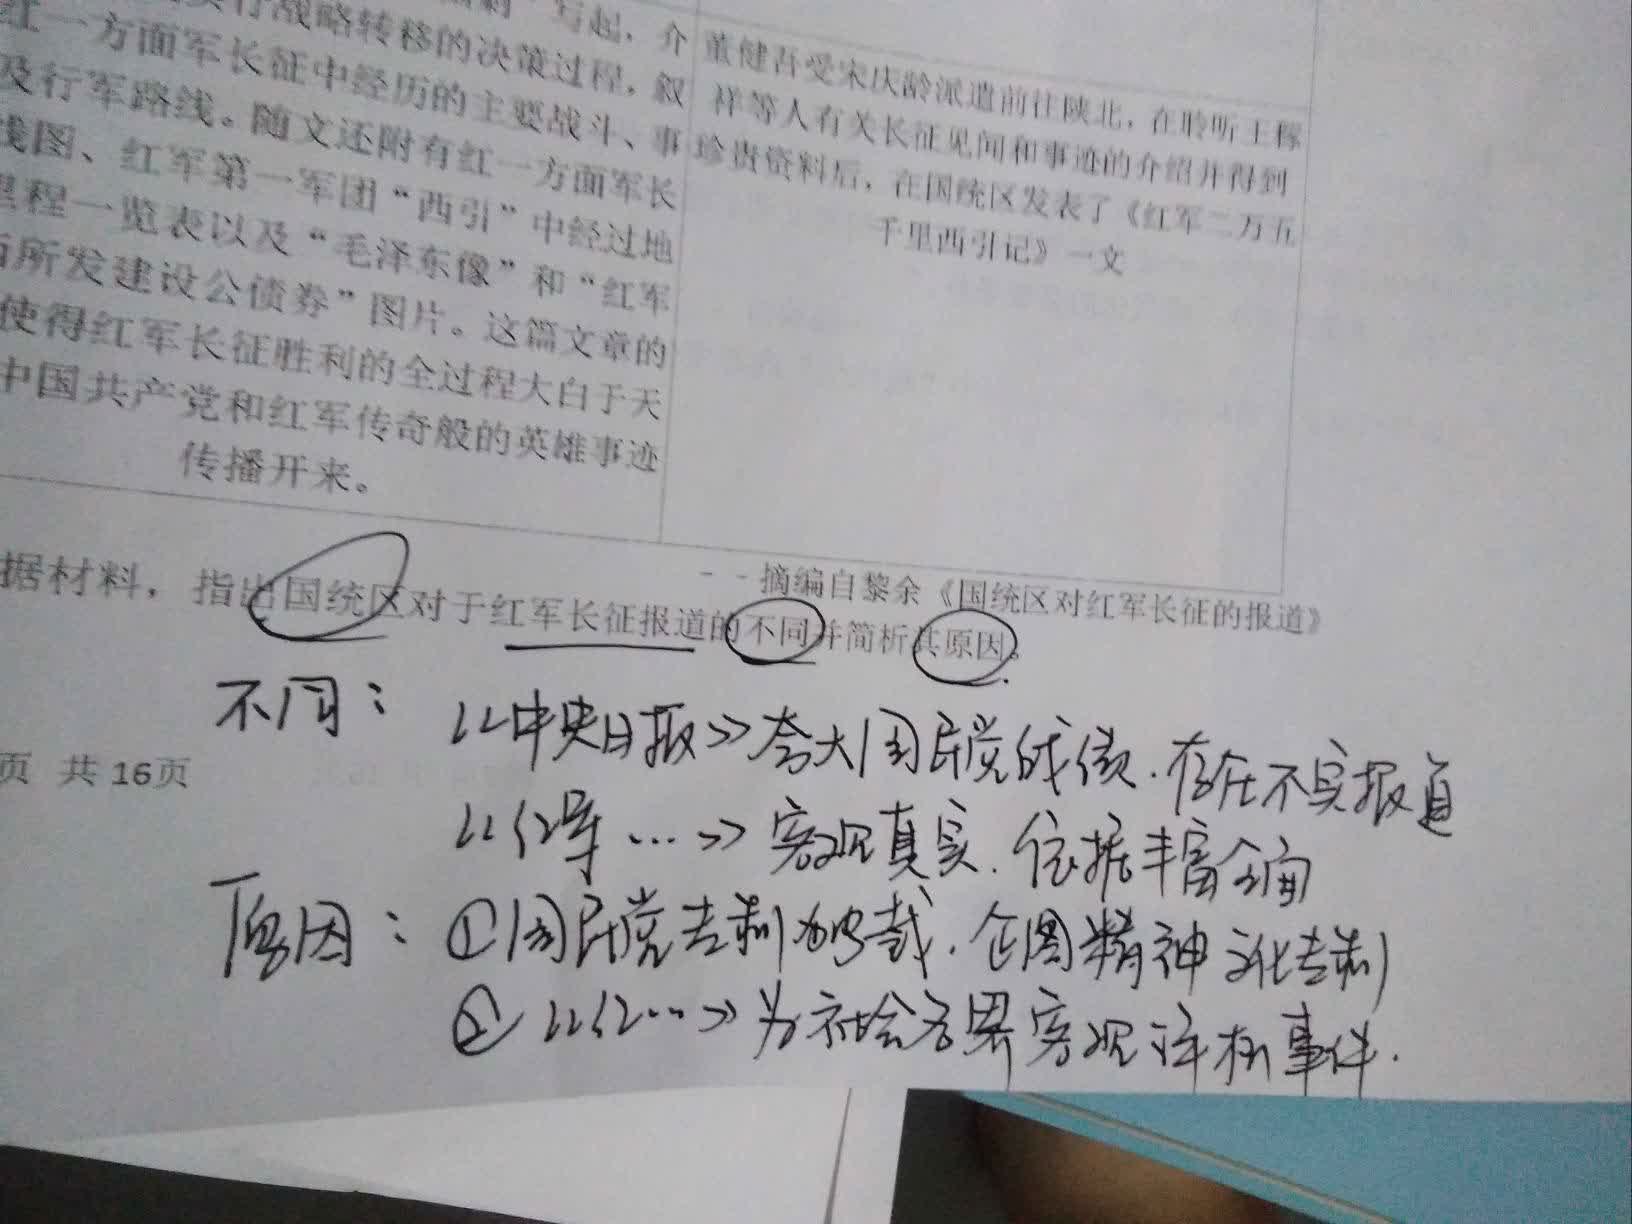 战略转移的决策过程，叙
写起，介
红一方面军长征中经历的主要战斗、事
及行军路线。随文还附有红一方面军长
线图、红军第一军团“西引”中经过地
里程一览表以及“毛泽东像”和“红军
所发建设公债券”图片。这篇文章的
使得红军长征胜利的全过程大白于天
中国共产党和红军传奇般的英雄事迹
传播开来。
董健吾受宋庆龄派遣前往陕北，在聆听王稼
祥等人有关长征见闻和事迹的介绍并得到
珍贵资料后，在国统区发表了《红军二万五
千里西引记》一文
--摘编自黎余《国统区对红军长征的报道》
据材料，指出国统区对于红军长征报道的不同并简析其原因。
不同：《中央日报》夸大国民党战绩.存在不实报道
《红军…》客观真实.依据丰富全面
页 共16页
原因：①国民党专制独裁.企图精神文化专制
②《红…》为社会各界客观评析事件.